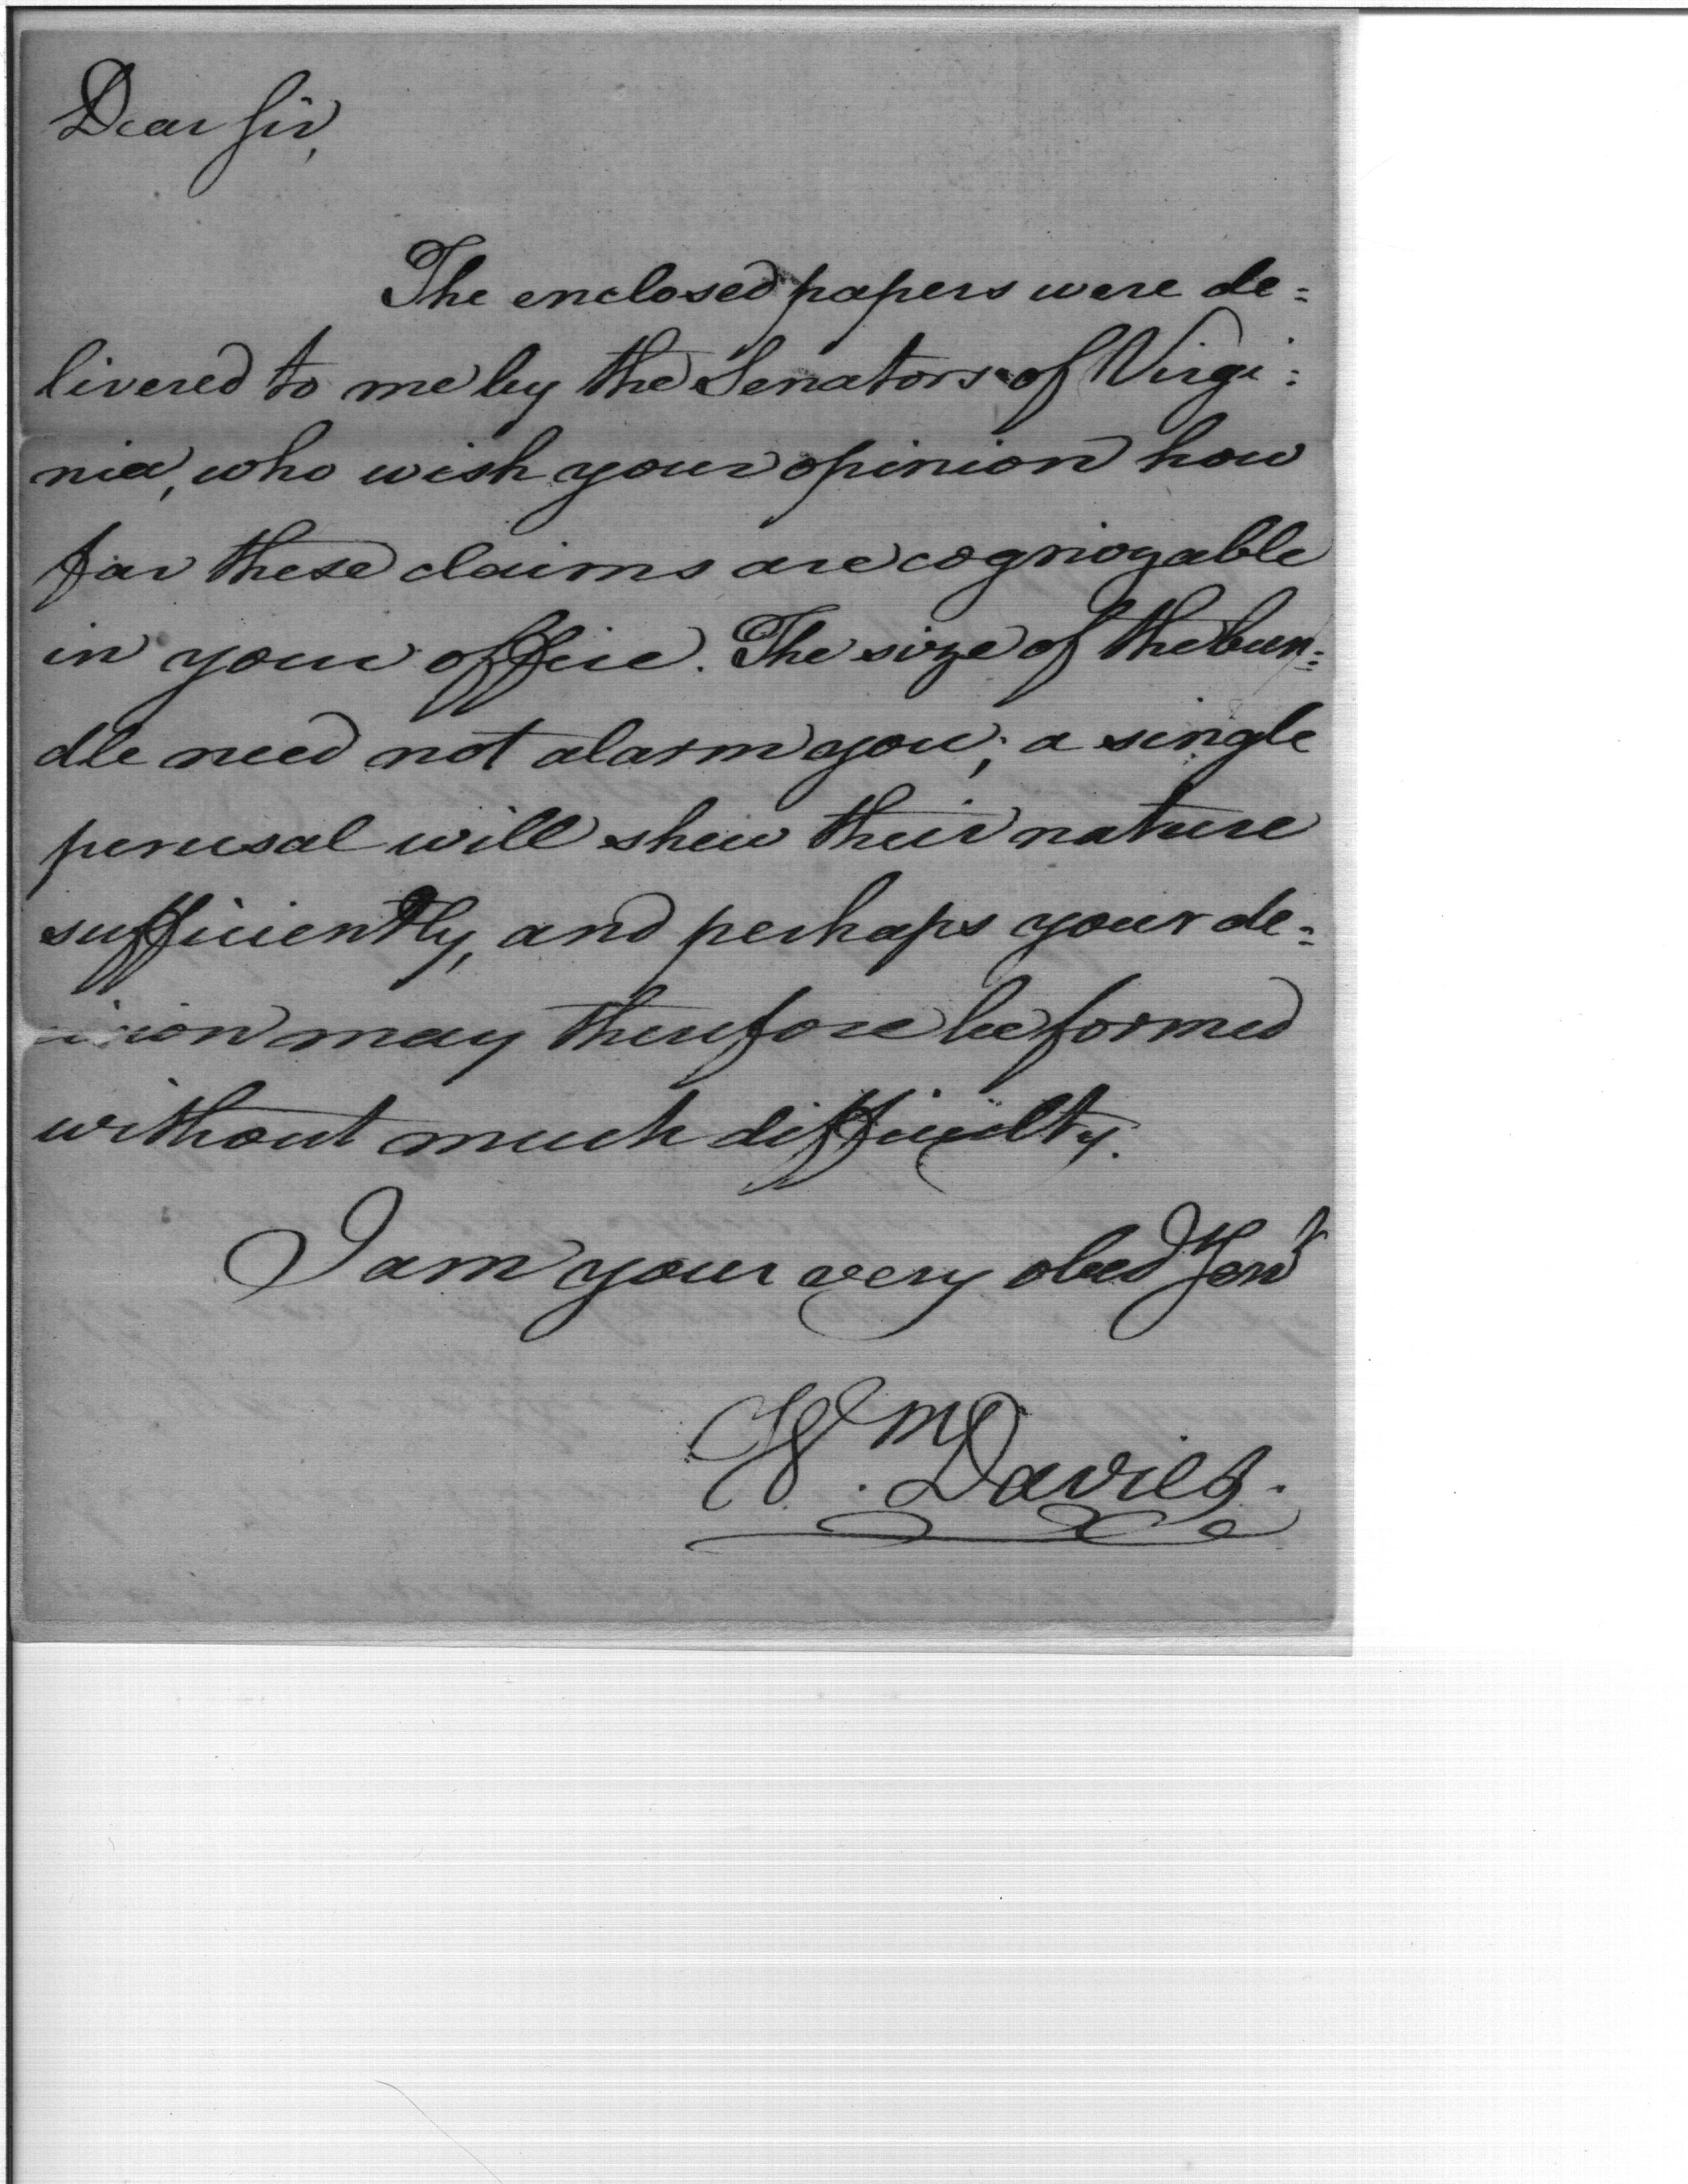 Dear Sir,
The enclosed papers were de=
livered to me by the Senators of Virgi=
nia, who wish your opinion how
far these claims are cognizable
in your office. The size of the bun=
dle need not alarm you; a single
perusal will shew their nature
sufficiently, and perhaps your de=
cision may therefore be formed
without much difficulty.
I am your very obed Servt
Wm. Davies.